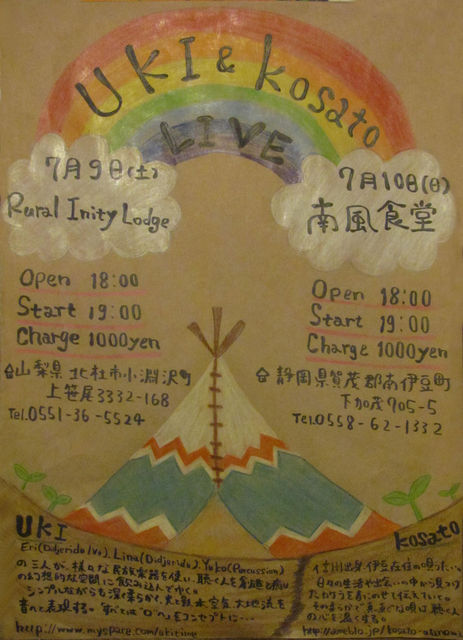 UKI & kosato
LIVE
7月9日(土)
Rural Inity Lodge
Open 18:00
Start 19:00
Charge 1000yen
山梨県 北杜市小淵沢町
上笹尾3332-168
Tel.0551-36-5524
7月10日(日)
南風食堂
Open 18:00
Start 19:00
Charge 1000yen
静岡県賀茂郡南伊豆町
下加茂905-5
Tel.0558-62-1332
UKI
Eri(Didjeridu/Vo)、Lina(Didjeridu)、Yuko(Percussion)
の三人が、様々な民族楽器を使い、聴く人を
幻想的な空間に飲み込んでゆく。
シンプルながらも深く柔らかく、火と
音で表現する。すべては"0"へをコンセプトに…
http://www.myspace.com/
kosato
出身、伊豆在住の唄
日々の生活や出会いの中から
のせて伝えていく。
な唄は、聴く人
の心を温くする。
http://ameblo.jp/kosato-